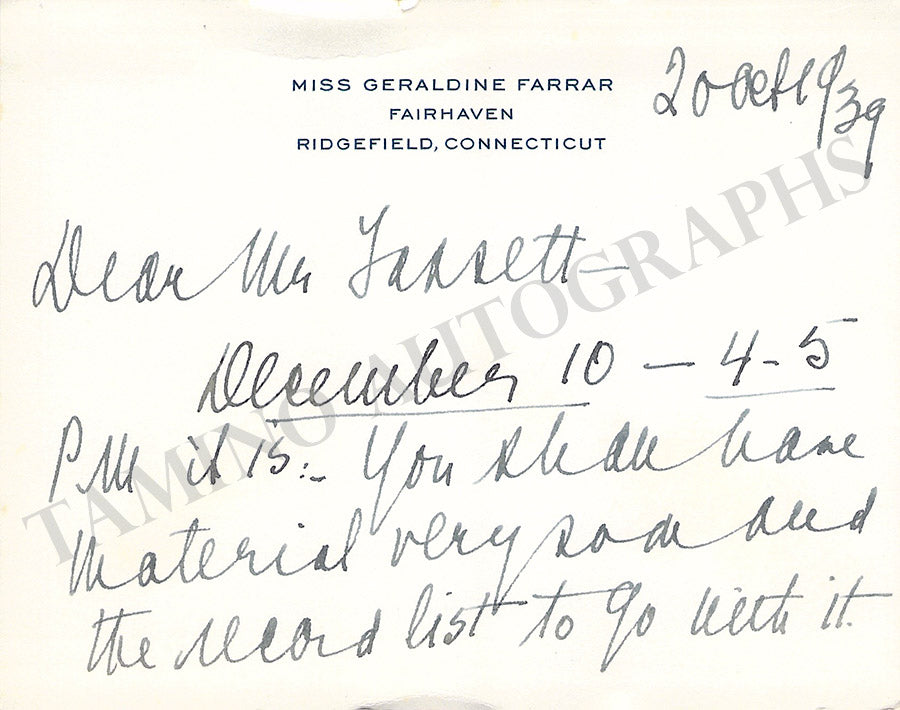 MISS GERALDINE FARRAR
FAIRHAVEN
RIDGEFIELD, CONNECTICUT
20 Oct 1939
Dear Mr Fassett—
December 10 — 4-5
P.M it is:- You shall have
material very soon and
the record list to go with it.
TAMINO AUTOGRAPHS